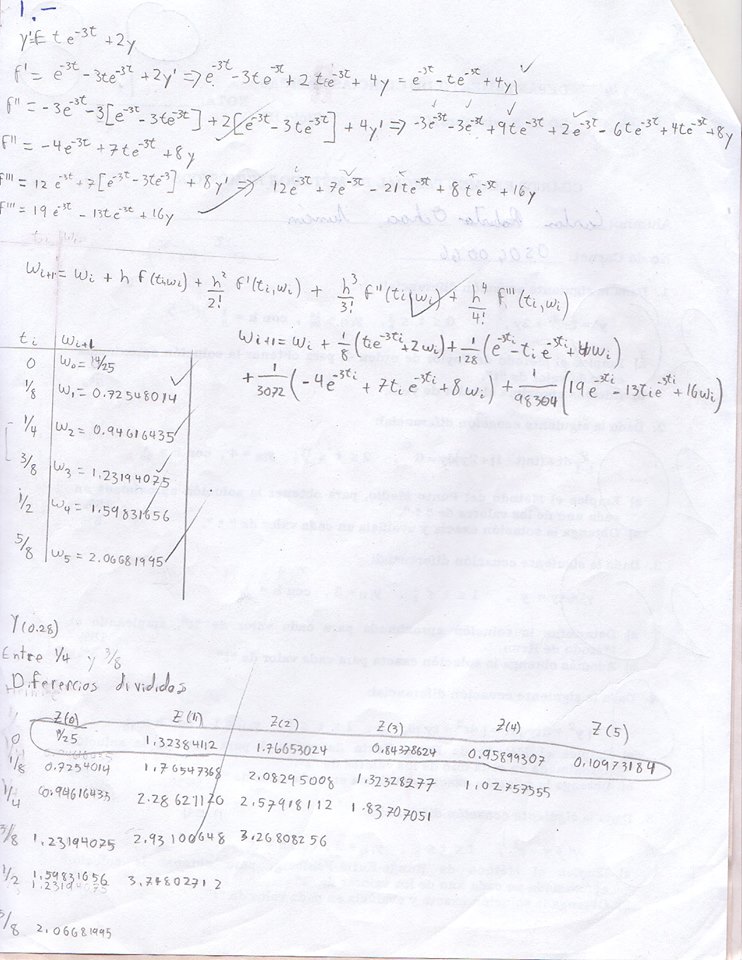 1.-
y'= t e^-3t + 2y
f' = e^-3t - 3te^-3t + 2y' => e^-3t - 3te^-3t + 2 te^-3t + 4y = e^-3t - te^-3t + 4y
f'' = -3e^-3t - 3[e^-3t - 3te^-3t] + 2[e^-3t - 3te^-3t] + 4y' => -3e^-3t - 3e^-3t + 9te^-3t + 2e^-3t - 6te^-3t + 4te^-3t + 8y
f'' = -4e^-3t + 7te^-3t + 8y
f''' = 12 e^-3t + 7[e^-3t - 3te^-3] + 8y' => 12e^-3t + 7e^-3t - 21te^-3t + 8te^-3t + 16y
f''' = 19e^-3t - 13te^-3t + 16y
wi+1 = wi + h f(ti,wi) + h²/2! f'(ti,wi) + h³/3! f''(ti,wi) + h⁴/4! f'''(ti,wi)
wi+1 = wi + 1/8 (tie^-3ti + 2wi) + 1/128 (e^-3ti - tie^-3ti + 4wi)
+ 1/3072 (-4e^-3ti + 7tie^-3ti + 8wi) + 1/98304 (19e^-3ti - 13tie^-3ti + 16wi)
ti wi+1
0 w0 = 14/25
1/8 w1 = 0.72548014
1/4 w2 = 0.94616435
3/8 w3 = 1.23194075
1/2 w4 = 1.59831656
5/8 w5 = 2.06681945
Y(0.28)
Entre 1/4 y 3/8
Diferencias divididas
Z(0) Z(1) Z(2) Z(3) Z(4) Z(5)
0 1.32384112 1.76653024 0.84378624 0.95899307 0.10973184
1/8 0.7254014 1.76547368 2.08295008 1.32328277 1.02757355
1/4 0.94616435 2.28621120 2.57918112 1.83707051
3/8 1.23194075 2.93100648 3.26808256
1/2 1.59831656 3.74802712
5/8 2.06681945